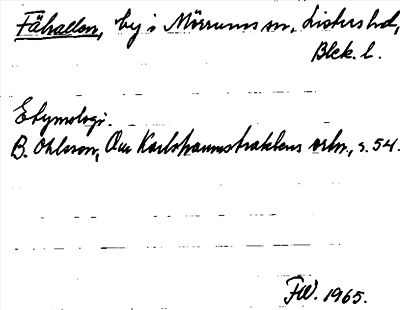 Fähallen, by i Mörrums sn, Listers hd,
Blek. l.
Etymologi.
B. Ohlsson, Om Karlshamnstraktens ortn., s. 54.
FW. 1965.